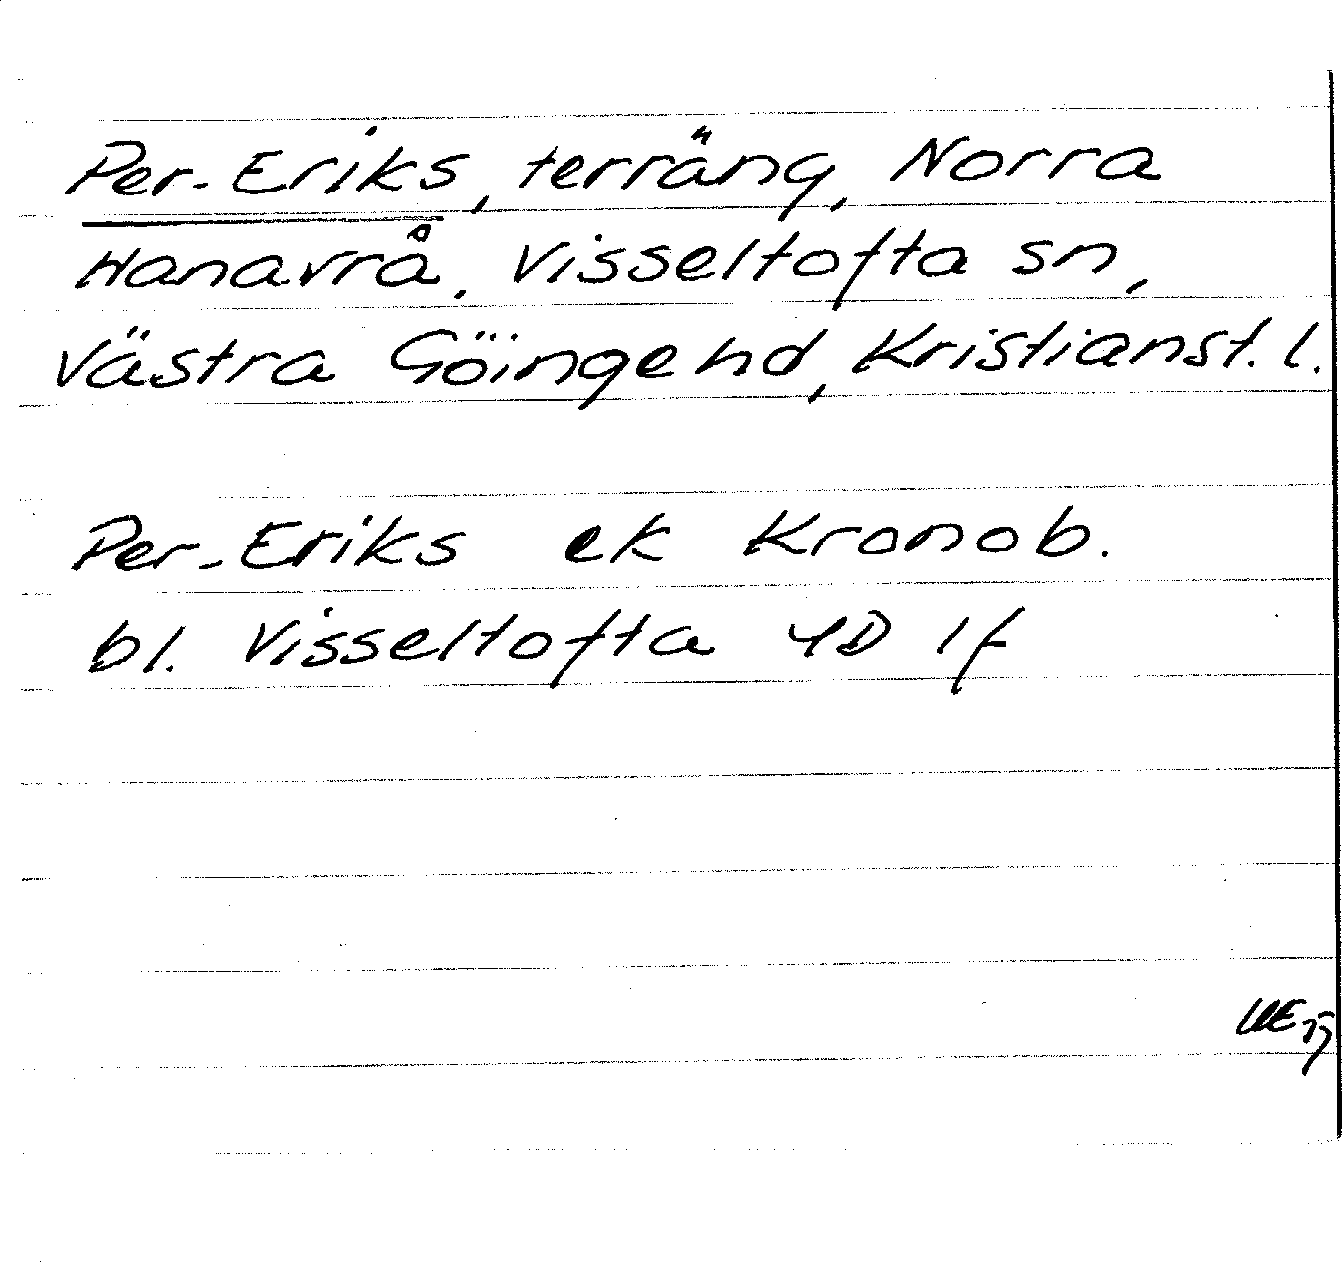 Per-Eriks, terräng, Norra
Hanavrå, Visseltofta sn,
Västra Göingehd, Kristianst. l.
Per-Eriks ek Kronob.
bl. Visseltofta 4D 1f